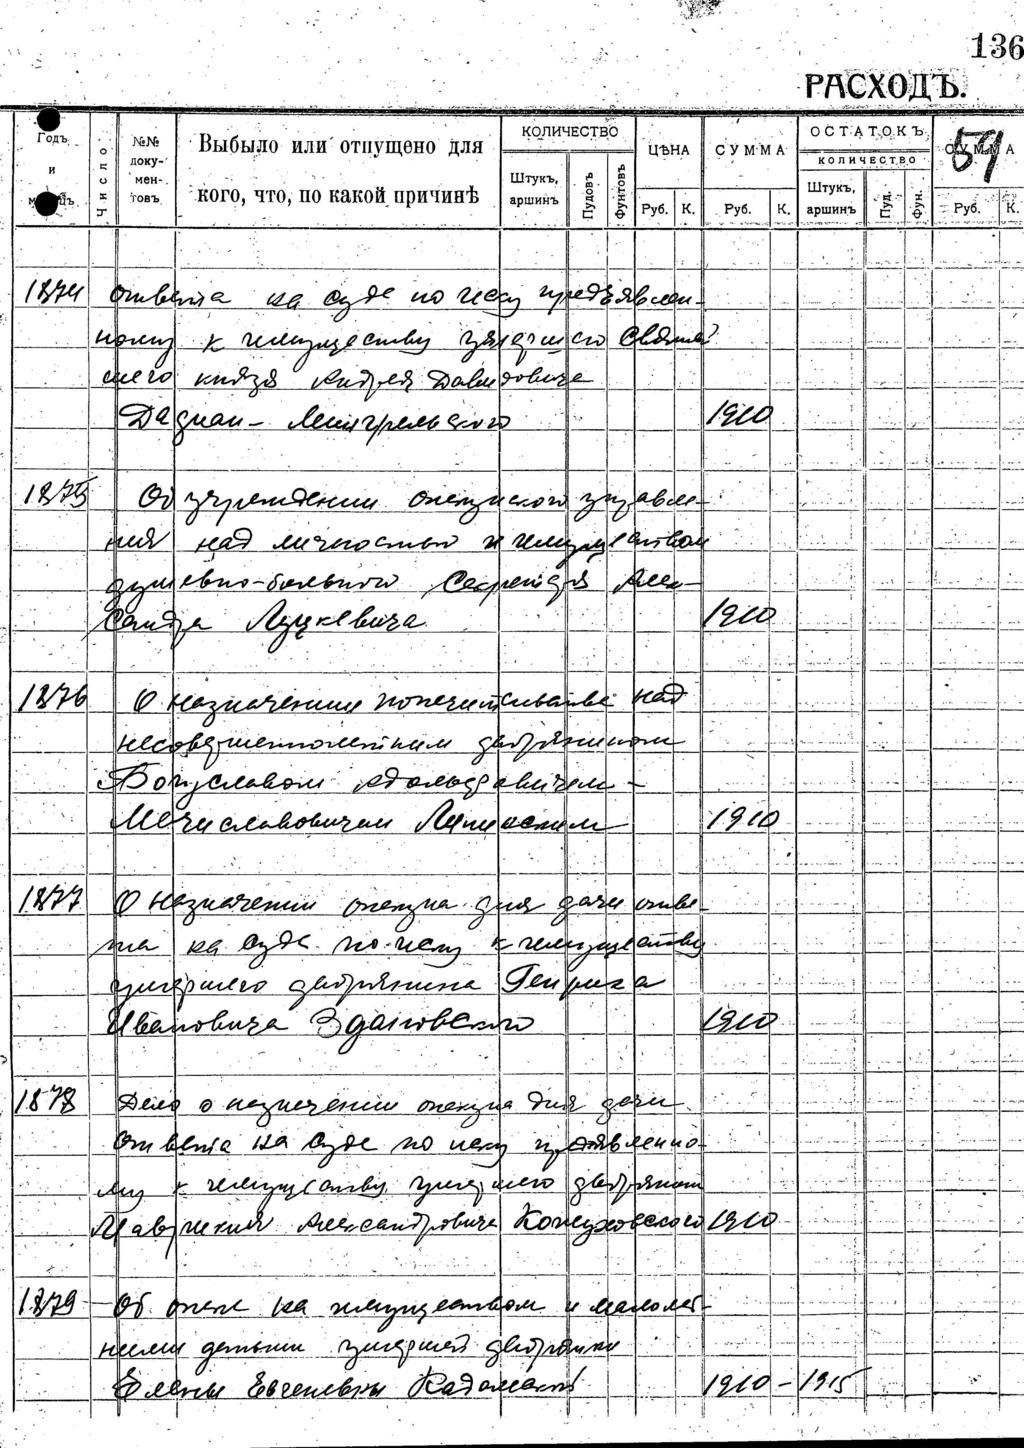 136
РАСХОДЪ.
Годъ и мѣсяцъ
Число
№№ доку-мен-товъ
Выбыло или отпущено для кого, что, по какой причинѣ
КОЛИЧЕСТВО
Штукъ, аршинъ
Пудовъ
Фунтовъ
ЦѢНА
Руб. К.
СУММА
Руб. К.
ОСТАТОКЪ
КОЛИЧЕСТВО
Штукъ, аршинъ
Пуд.
Фун.
СУММА
Руб. К.
59
1874 ответа на суде по иску предъявлен-
ному к имуществу умершего Светлей
шего князя Андрея Давидовича
Дадиан-Мингрельского 1910
1875 Об учреждении опекунского управле-
ния над личностью и имуществом
душевно-больного Секретаря Алек-
сандра Луцкевича 1910
1876 О назначении попечительства над
несовершеннолетним дворянином
Богуславом Адольф
Мечиславовичем 1910
1877 О назначении опекуна для дачи отве-
та на суде по иску к имуществу
умершего дворянина Генриха
Ивановича Здановского 1910
1878 Дело о назначении опекуна для дачи
ответа на суде по иску предъявленно-
му к имуществу умершего дворянина
Маврикия Александровича Кожуховского 1910
1879 Об опеке на имуществом и малолет-
ними детьми умершей дворянки
Елены Евгеневны Радомской 1910-1915